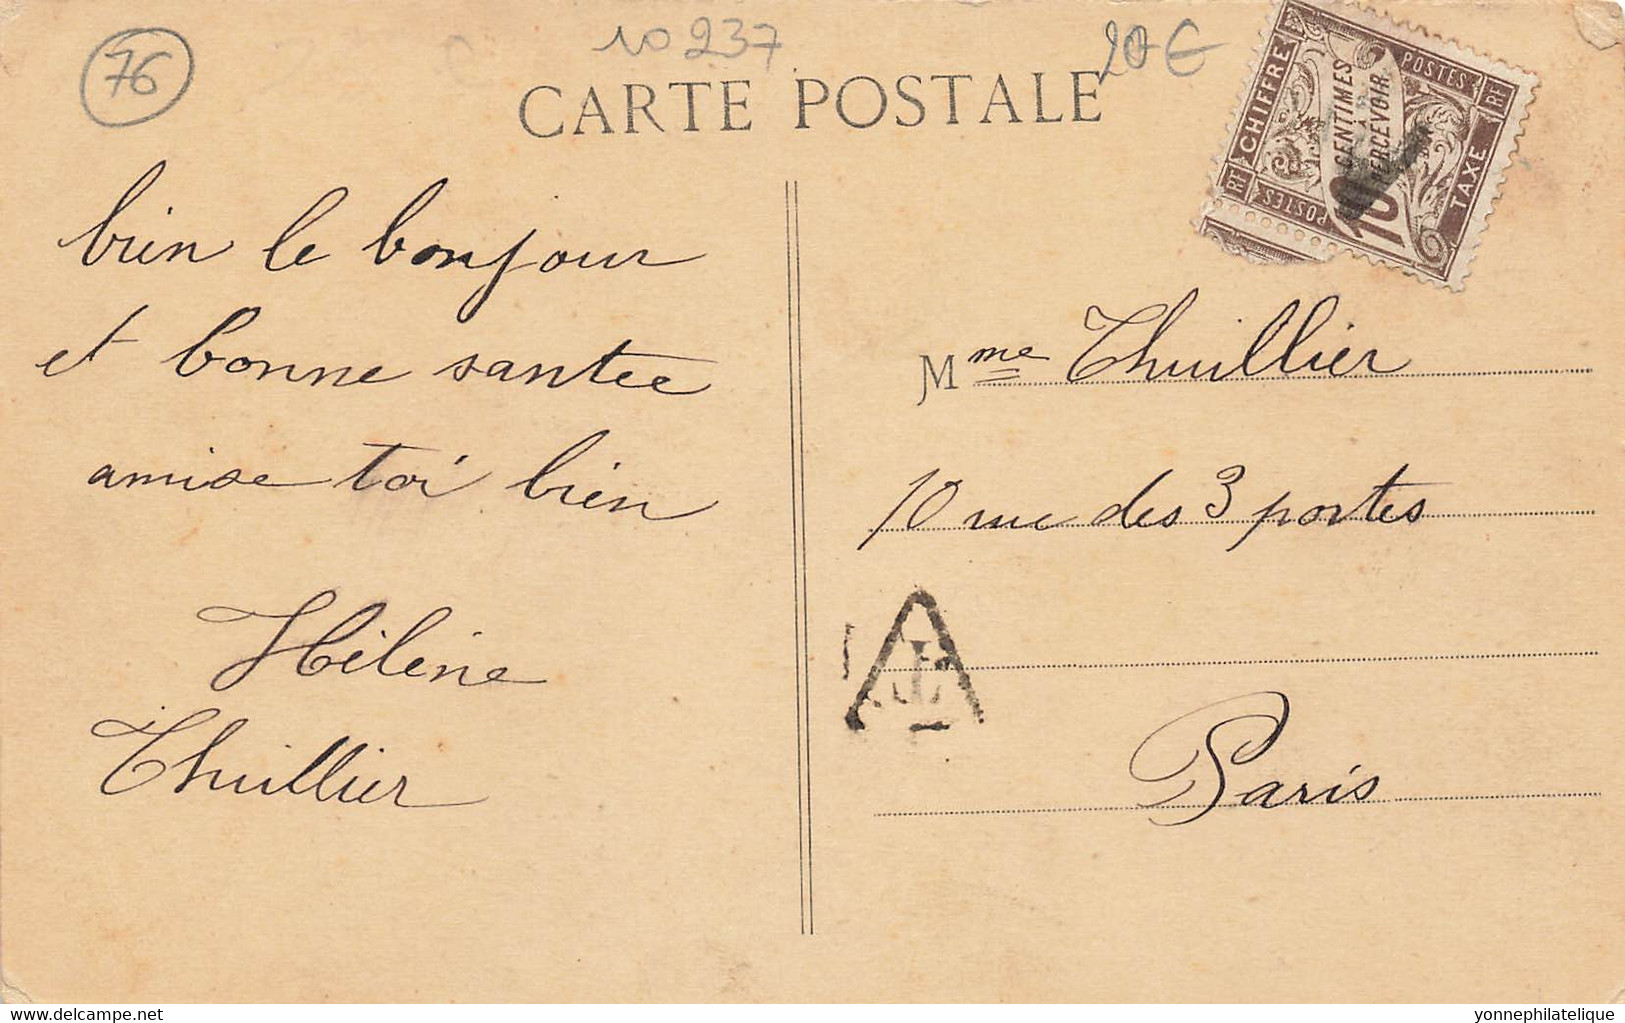 76
10237
20€
CARTE POSTALE
CHIFFRE
POSTES
RF
TAXE
RF
POSTES
10
CENTIMES
A
PERCEVOIR
bien le bonjour
et bonne santee
amise toi bien
Hélène
Thuillier
Mme Thuillier
10 rue des 3 portes
Paris
yonnephilatelique